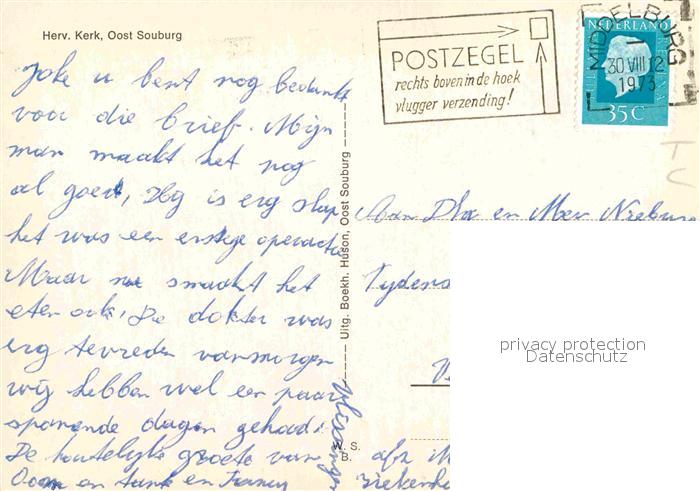 Herv. Kerk, Oost Souburg
POSTZEGEL
rechts boven in de hoek
vlugger verzending!
MIDDELBURG
30 VIII 12
1973
NEDERLAND
35 C
T
C
Joke u bent nog bedankt
voor die brief. Mijn
man maakt het nog
al goed, Hij is erg slap
het was een erstige operatie
Maar nu smaakt het
eten ook, De dokter was
erg tevreden vanmorgen
wij hebben wel een paar
spanende dagen gehad.
De hartelijke groete van
Oom en tante en
Vlissingen
Uitg. Boekh. Huson, Oost Souburg
W. S.
B.
Aan Dhr en Mev
privacy protection
Datenschutz
afz